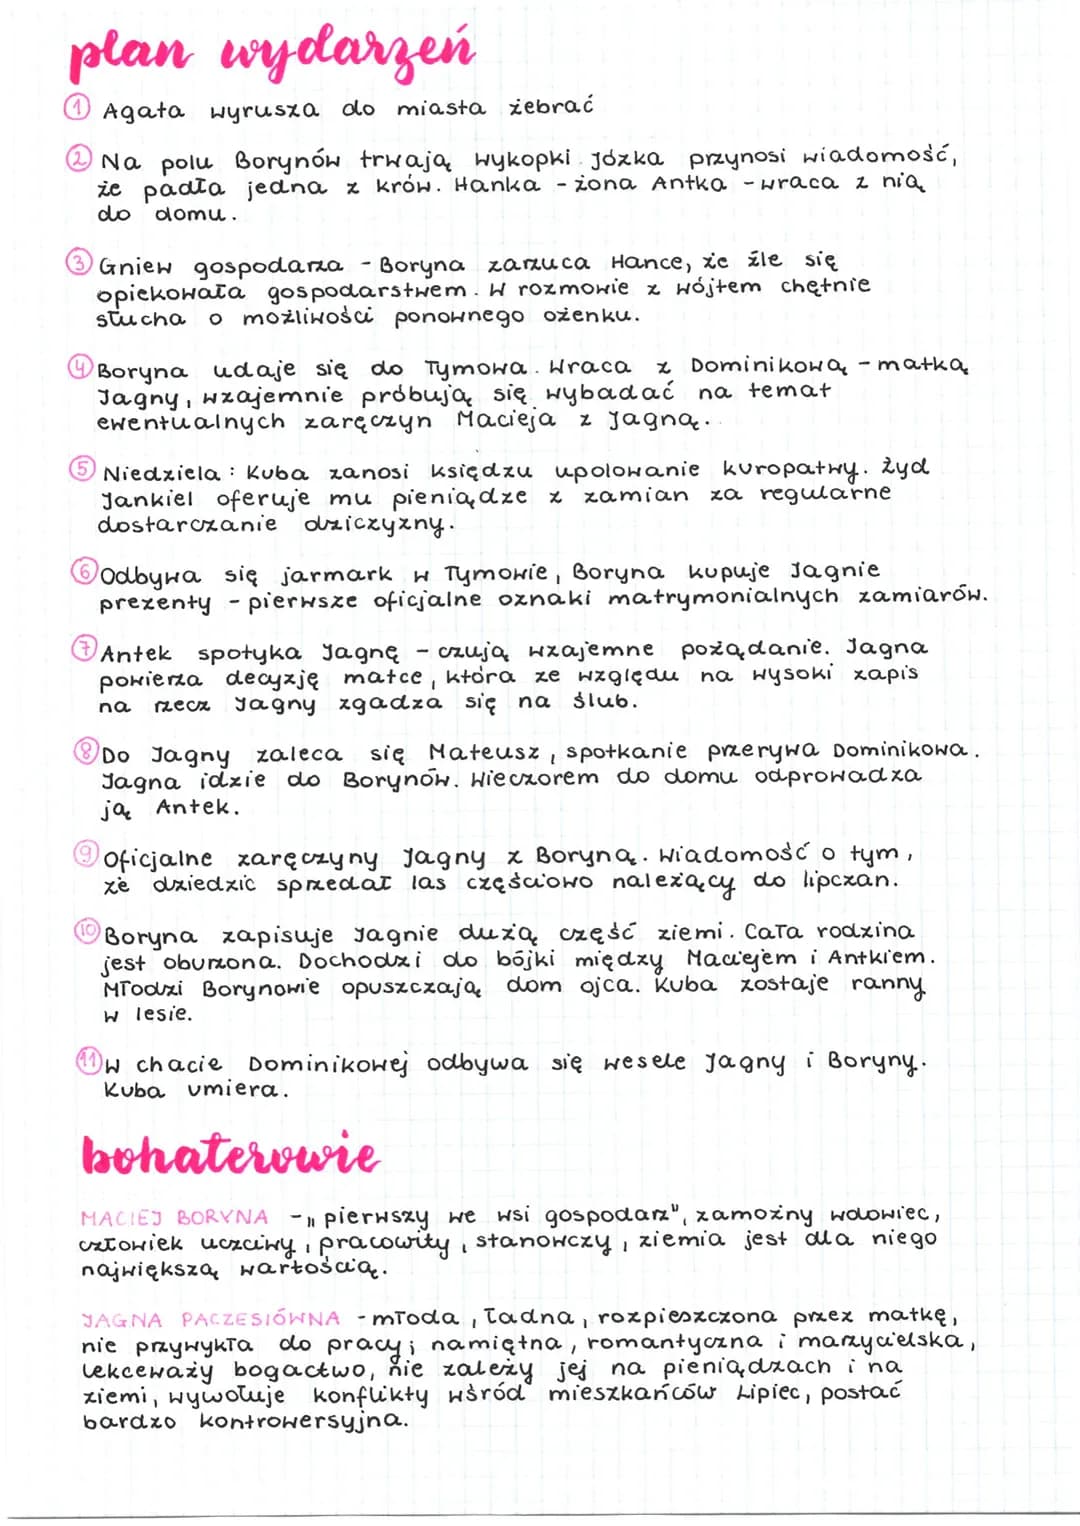 plan wydarzeń
① Agata wyrusza do miasta żebrać
② Na polu Borynów trwają wykopki. Józka przynosi wiadomość,
że padła jedna z krów. Hanka - żona Antka - wraca z nią
do domu.
③ Gniew gospodarza - Boryna zarzuca Hance, że źle się
opiekowała gospodarstwem. W rozmowie z wójtem chętnie
słucha o możliwości ponownego ożenku.
④ Boryna udaje się do Tymowa. Wraca z Dominikową - matką
Jagny, wzajemnie próbują się wybadać na temat
ewentualnych zaręczyn Macieja z Jagną.
⑤ Niedziela: Kuba zanosi księdzu upolowanie kuropatwy. Żyd
Jankiel oferuje mu pieniądze z zamian za regularne
dostarczanie dziczyzny.
⑥ Odbywa się jarmark w Tymowie, Boryna kupuje Jagnie
prezenty - pierwsze oficjalne oznaki matrymonialnych zamiarów.
⑦ Antek spotyka Jagnę - czują wzajemne pożądanie. Jagna
powierza decyzję matce, która ze względu na wysoki zapis
na rzecz Jagny zgadza się na ślub.
⑧ Do Jagny zaleca się Mateusz, spotkanie przerywa Dominikowa.
Jagna idzie do Borynów. Wieczorem do domu odprowadza
ją Antek.
⑨ Oficjalne zaręczyny Jagny z Boryną. Wiadomość o tym,
że dziedzic sprzedał las częściowo należący do lipczan.
⑩ Boryna zapisuje Jagnie dużą część ziemi. Cała rodzina
jest oburzona. Dochodzi do bójki między Maciejem i Antkiem.
Młodzi Borynowie opuszczają dom ojca. Kuba zostaje ranny
w lesie.
⑪ W chacie Dominikowej odbywa się wesele Jagny i Boryny.
Kuba umiera.
bohaterowie
MACIEJ BORYNA - „pierwszy we wsi gospodarz", zamożny wdowiec,
człowiek uczciwy, pracowity, stanowczy, ziemia jest dla niego
największą wartością.
JAGNA PACZESIÓWNA - młoda, ładna, rozpieszczona przez matkę,
nie przywykła do pracy; namiętna, romantyczna i marzycielska,
lekceważy bogactwo, nie zależy jej na pieniądzach i na
ziemi, wywołuje konflikty wśród mieszkańców Lipiec, postać
bardzo kontrowersyjna.